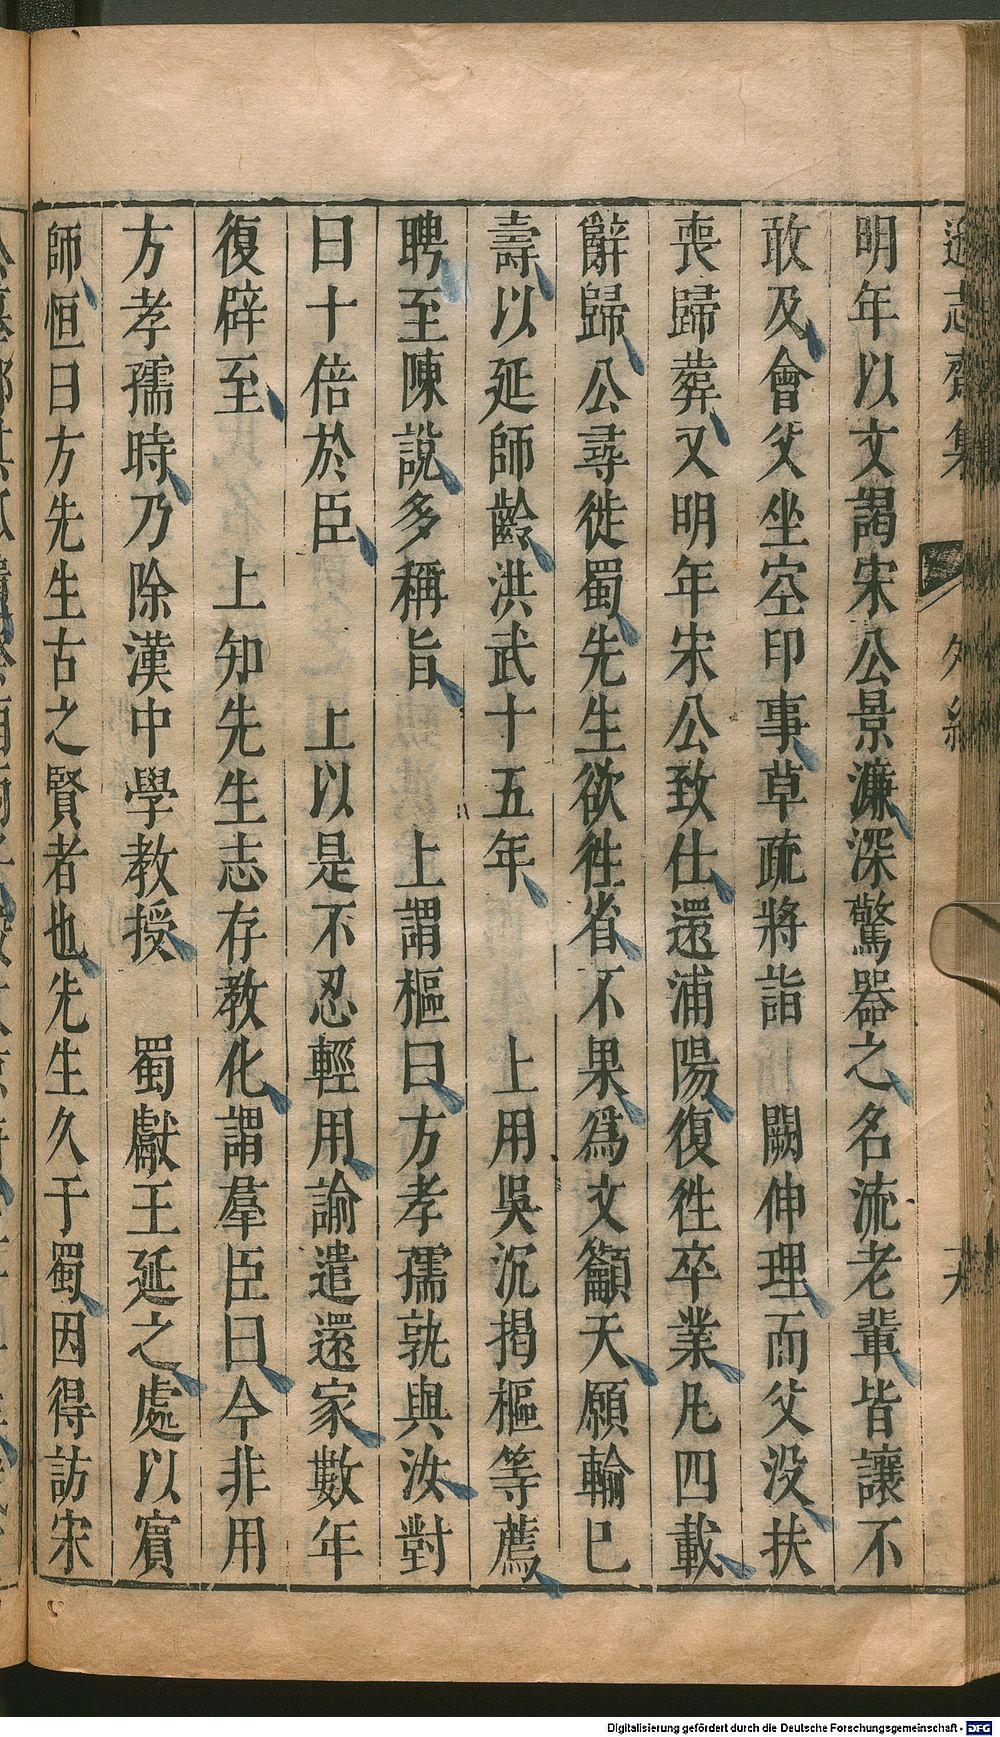 遜志齋集 外紀
明年以文謁宋公景濂深驚器之名流老輩皆讓不
敢及會父坐空印事草疏將詣 闕伸理而父没扶
喪歸葬又明年宋公致仕還浦陽復徃卒業凡四載
辭歸公尋徙蜀先生欲徃省不果爲文籲天願輸已
壽以延師齡洪武十五年 上用吳沉揭樞等薦
聘至陳說多稱旨 上謂樞曰方孝孺孰與汝對
曰十倍於臣 上以是不忍輕用諭遣還家數年
復辟至 上知先生志存教化謂羣臣曰今非用
方孝孺時乃除漢中學教授 蜀獻王延之處以賓
師恒曰方先生古之賢者也先生久于蜀因得訪宋
Digitalisierung gefördert durch die Deutsche Forschungsgemeinschaft - DFG